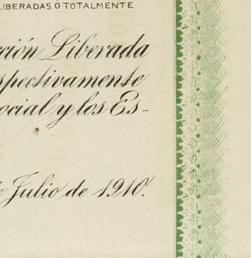 LIBERADAS O TOTALMENTE
ción Liberada
spectivamente
ocial y los Es-
de Julio de 1910.